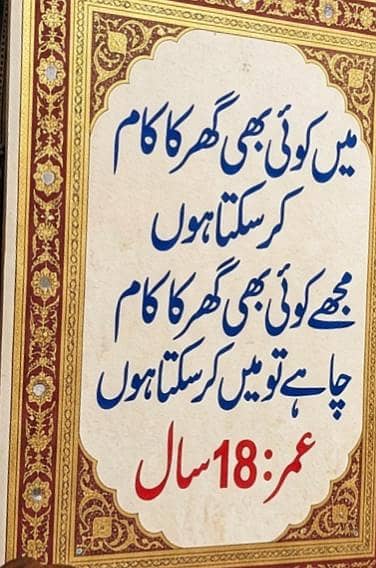 میں کوئی بھی گھر کا کام
کر سکتا ہوں
مجھے کوئی بھی گھر کا کام
چاہے تو میں کر سکتا ہوں
عمر: 18 سال